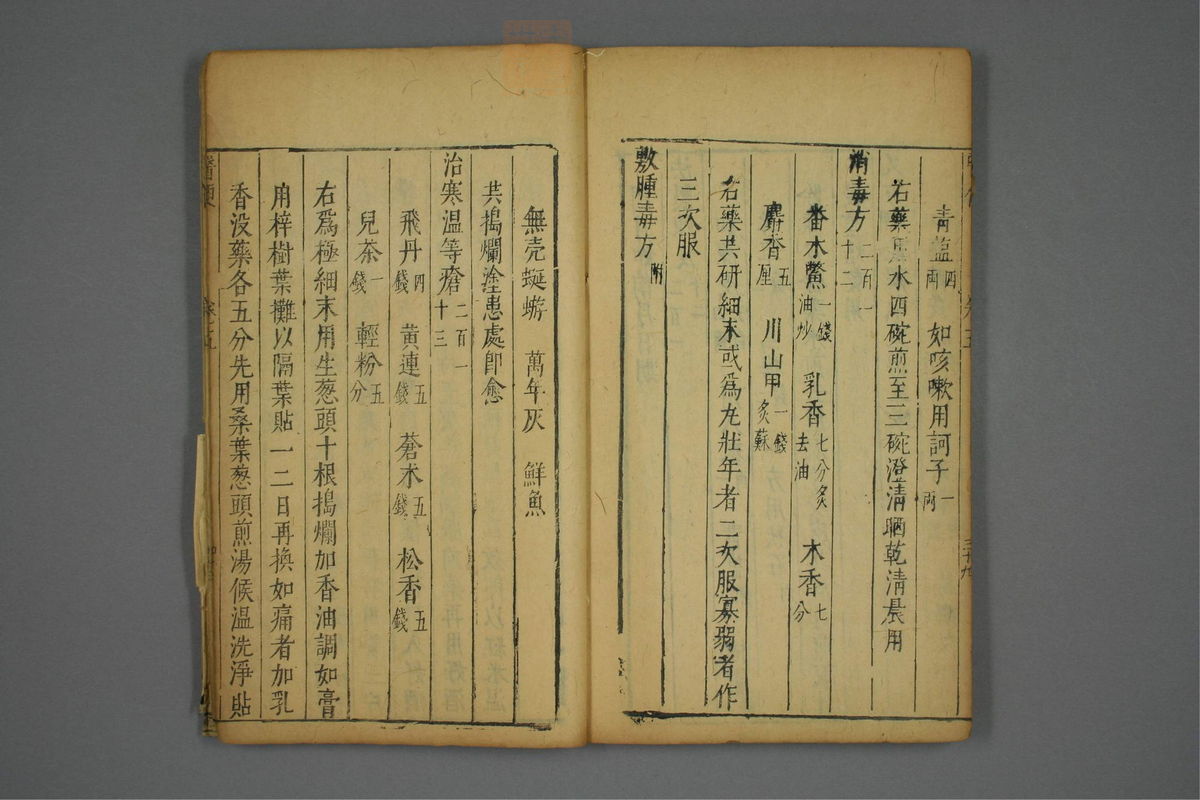 青鹽四兩　如咳嗽用訶子一兩
右藥用水四碗煎至三碗澄清晒乾清晨用
消毒方二百一十二
番木鱉一錢油炒　乳香七分炙去油　木香七分
麝香五厘　川山甲一錢炙蘇
右藥共研細末或為丸壯年者二次服寡弱者作
三次服
敷腫毒方附
無壳蜒蝣　萬年灰　鮮魚
共搗爛塗患處即愈
治寒温等瘡二百一十三
飛丹四錢　黃連五錢　蒼朮五錢　松香五錢
兒茶一錢　輕粉五分
右為極細末用生葱頭十根搗爛加香油調如膏
用梓樹葉攤以隔葉貼一二日再換如痛者加乳
香没藥各五分先用桑葉葱頭煎湯候温洗淨貼
醫便　卷之五